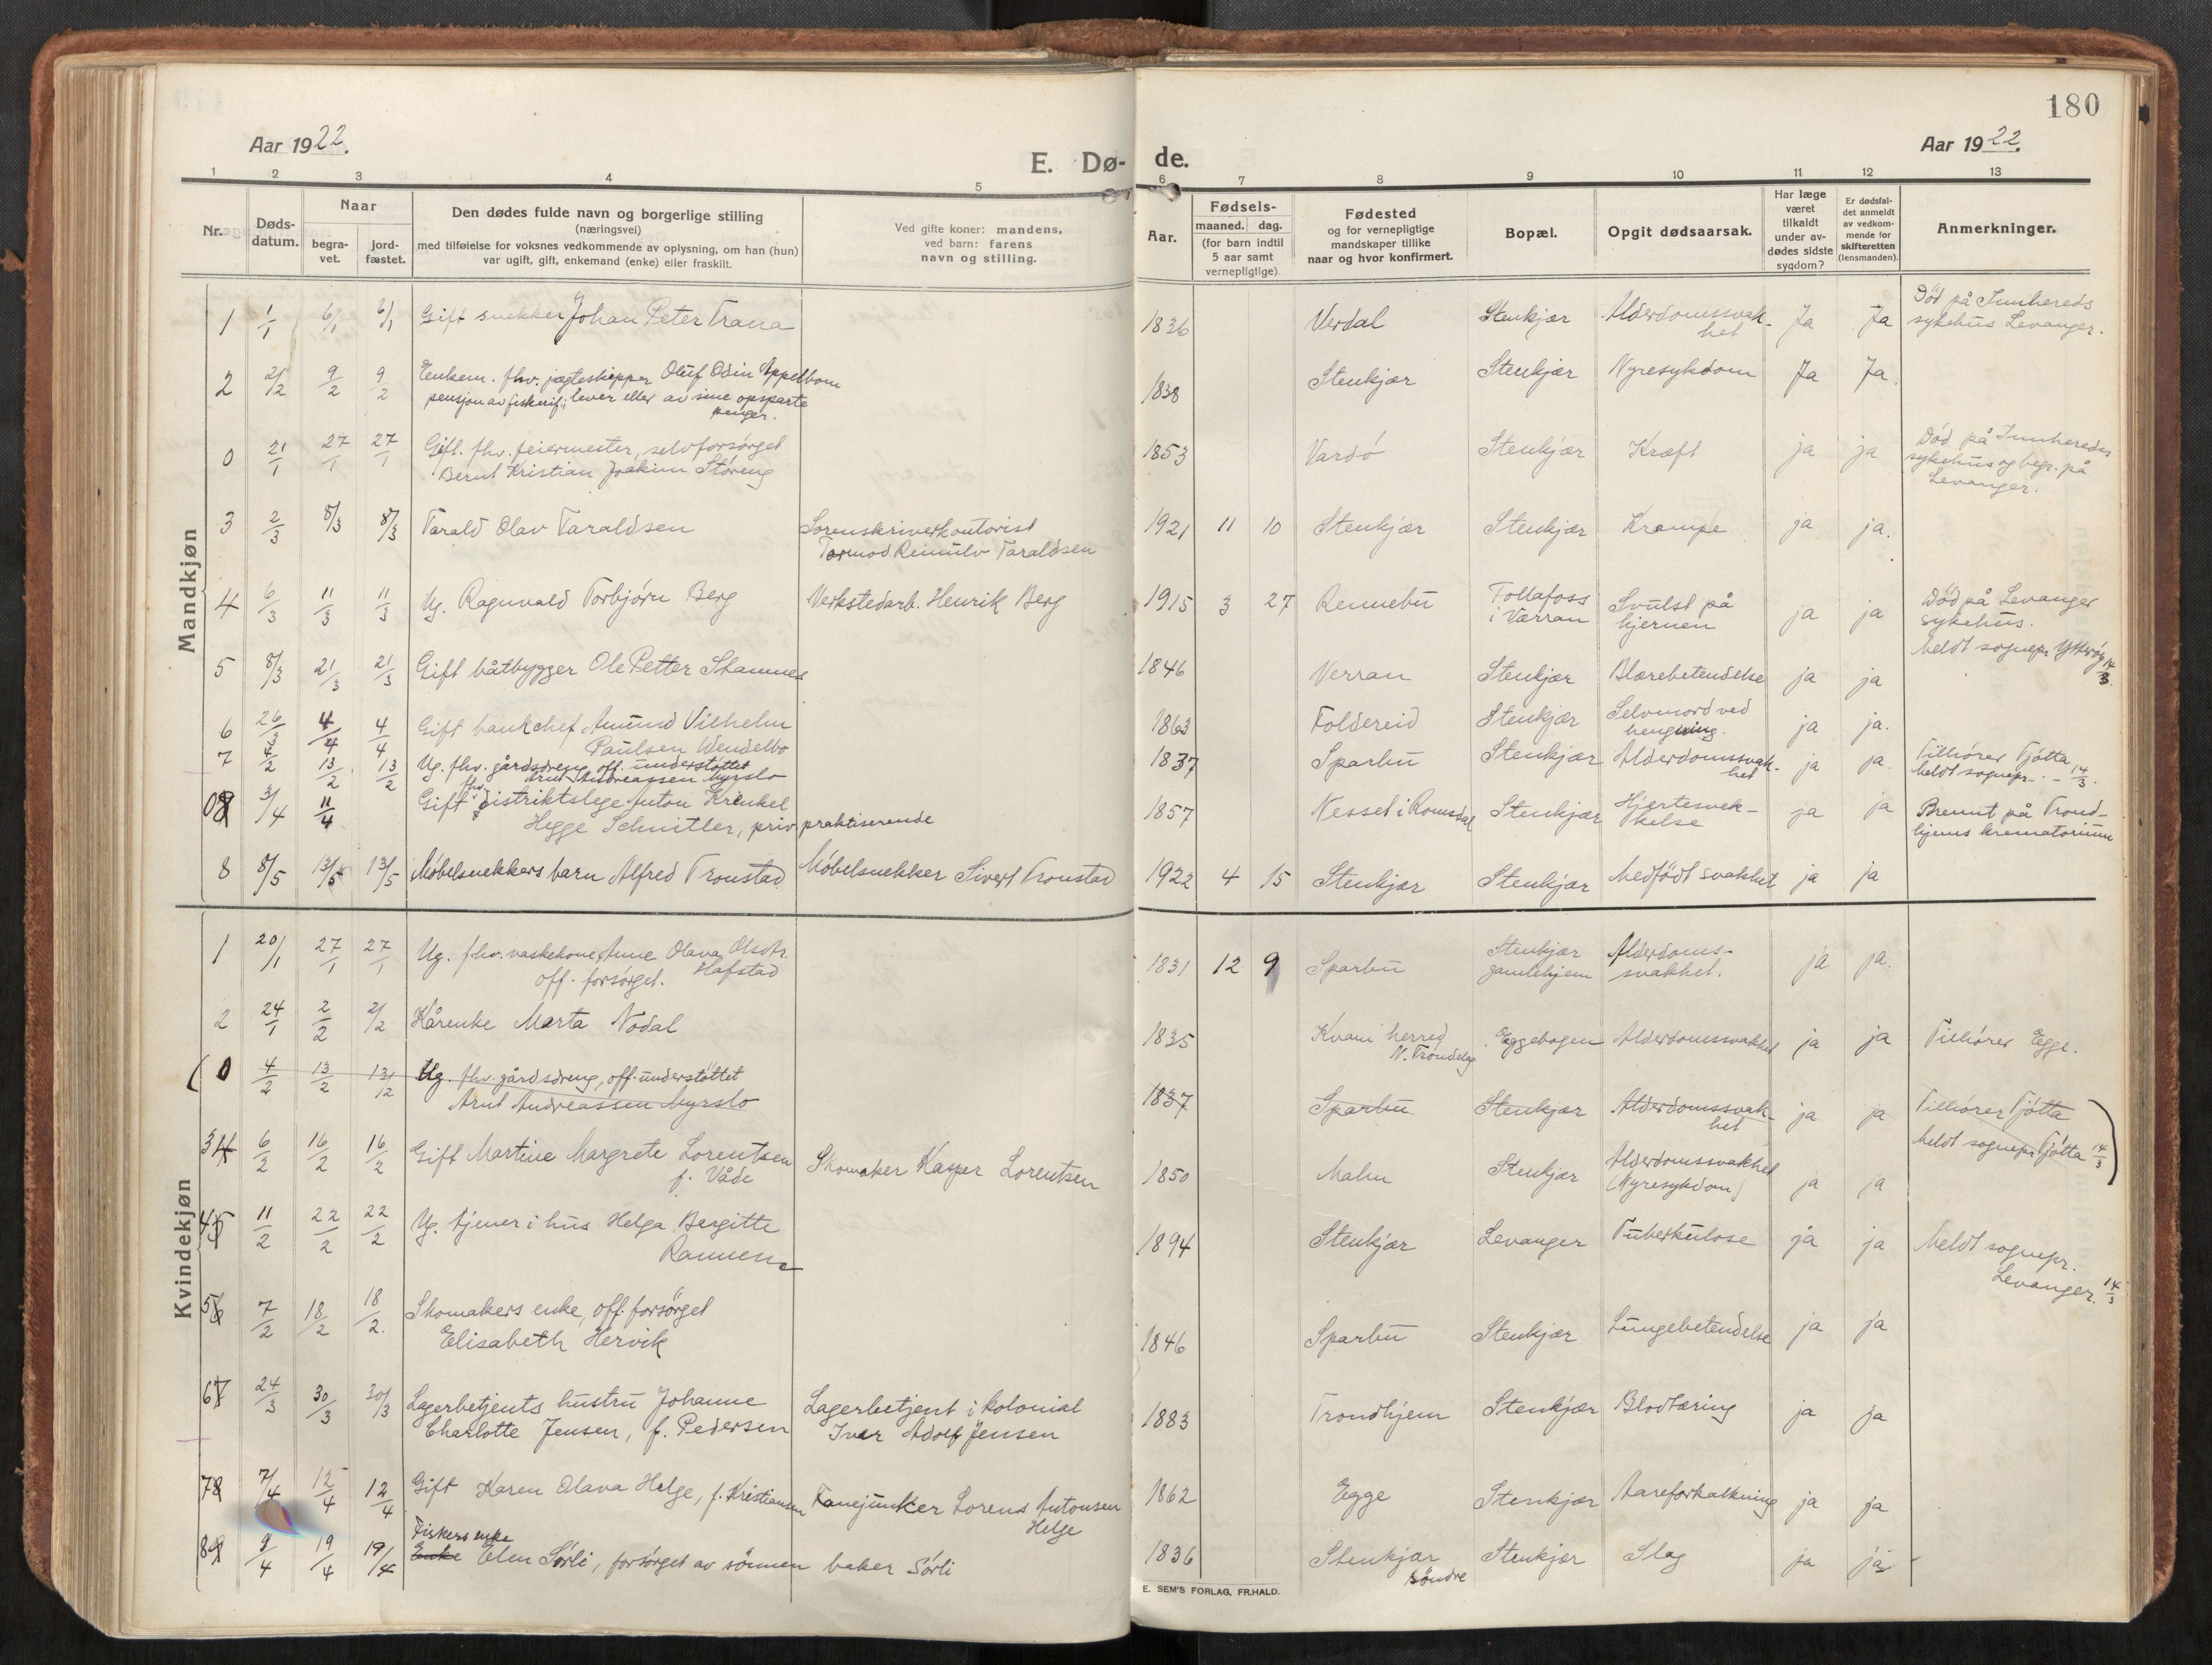 180
Aar 1922.
E. Dø- de.
Aar 1922.
1 2 3 4 5 6 7 8 9 10 11 12 13
Nr.
Døds-
datum.
Naar
begra-
vet.
jord-
fæstet.
Den dødes fulde navn og borgerlige stilling
(næringsvei)
med tilføielse for voksnes vedkommende av oplysning, om han (hun)
var ugift, gift, enkemand (enke) eller fraskilt.
Ved gifte koner: mandens,
ved barn: farens
navn og stilling.
Aar.
Fødsels-
maaned. dag.
(for barn indtil
5 aar samt
vernepligtige)
Fødested
og for vernepligtige
mandskaper tillike
naar og hvor konfirmert.
Bopæl.
Opgit dødsaarsak.
Har læge
været
tilkaldt
under av-
dødes sidste
sygdom?
Er dødsfal-
det anmeldt
av vedkom-
mende for
skifteretten
(lensmanden).
Anmerkninger.
Mandkjøn
1 1/1 6/1 6/1 Gift snekker Johan Peter Trana 1836 Verdal Stenkjær Alderdomssvak-
het Ja Ja Död på Innhereds
sykehus Levanger.
2 2/2 9/2 9/2 Enkem. fhv. jægteskipper Oluf Odin Appelbom
pensjon av fiskerif.; lever eller av sine opsparte
penger. 1838 Stenkjær Stenkjær Nyresykdom Ja Ja.
0 21/1 27/1 27/1 Gift. fhv. feiermester, selvforsörget
Bernt Kristian Joakim Störeng 1853 Vardö Stenkjær Kræft ja ja Död på Innhereds
sykehus og begr. på
Levanger.
3 2/3 8/3 8/3 Tarald Olav Taraldsen Sorenskriverkontorist
Tormod Reinulv Taraldsen 1921 11 10 Stenkjær Stenkjær Krampe ja ja.
4 6/3 11/3 11/3 Ug. Ragnvald Torbjörn Berg Verkstedarb. Henrik Berg 1915 3 27 Rennebu Follafoss
i Værran Svulst på
hjernen ja ja Död på Levanger
sykehus.
Meldt sognepr. Ytteröy 14/3.
5 8/3 21/3 21/3 Gift båtbygger Ole Petter Skamnes 1846 Verran Stenkjær Blærebetendelse ja ja
6 26/3 4/4 4/4 Gift bankchef Amund Vilhelm
Paulsen Wendelbo 1863 Foldereid Stenkjær Selvmord ved
hengning. ja ja.
7 4/2 13/2 13/2 Ug. fhv. gårdsdreng off. understöttet
Arnt Andreassen Myrslo 1837 Sparbu Stenkjær Alderdomssvak-
het ja ja. Tilhörer Tjötta
Meldt sognepr. - 14/3.
0 3/4 11/4 Gift fhv. distriktslege Anton Krenkel
Hegge Schnitler, priv. praktiserende 1857 Nesset i Romsdal Stenkjær Hjertesvek-
kelse ja ja Brennt på Trond-
hjems krematorium
8 8/5 13/5 13/5 Möbelsnekkers barn Alfred Tronstad Möbelsnekker Sivert Tronstad 1922 4 15 Stenkjær Stenkjær Medfödt svakhet ja ja
Kvindekjøn
1 20/1 27/1 27/1 Ug. fhv. vaskekone Anne Olava Olsdtr.
off. forsörget. Hafstad 1831 12 9 Sparbu Stenkjær
gamlehjem Alderdoms-
svakhet. ja ja.
2 24/1 2/2 2/2 Kårenke Marta Nödal 1835 Kvam herred
N. Tröndelag Eggebogen Alderdomssvakhet ja ja Tilhörer Egge.
0 4/2 13/2 13/12 Ug. fhv. gårdsdreng, off. understöttet
Arnt Andreassen Myrslo 1837 Sparbu Stenkjær Alderdomssvak-
het ja ja Tilhörer Tjötta
Meldt sognepr. Tjötta 14/3
3 6/2 16/2 16/2 Gift Martine Margrete Lorentsen
f. Våde Skomaker Kasper Lorentsen 1850 Malm Stenkjær Alderdomssvakhet
(Nyresykdom) ja ja
4 11/2 22/2 22/2 Ug. tjener i hus Helga Bergitte
Rannem 1894 Stenkjær Levanger Tuberkulose ja ja Meldt sognepr.
Levanger. 14/3
5 7/2 18/2 18/2. Skomakers enke, off. forsörget
Elisabeth Hervik 1846 Sparbu Stenkjær Lungebetendelse ja ja
6 24/3 30/3 30/3 Lagerbetjents hustru Johanne
Charlotte Jensen, f. Pedersen Lagerbetjent i kolonial
Ivar Adolf Jensen 1883 Trondhjem Stenkjær Blodtæring ja ja
7 7/4 12/4 12/4 Gift Karen Olava Helge, f. Kristiansen Fanejunker Lorens Antonsen
Helge 1862 Egge Stenkjær Aareforkalkning ja ja
8 9/4 19/4 19/4 Fiskers enke
Enke Elen Sörli, forsörget av sönnen baker Sörli 1836 Stenkjær
söndre Stenkjær Slag ja ja
E. SEM'S FORLAG, FR.HALD.